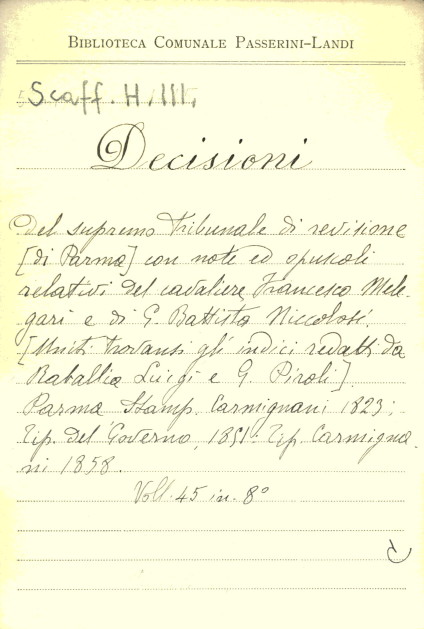 BIBLIOTECA COMUNALE PASSERINI-LANDI
Scaff. H. III.
Decisioni
Del supremo Tribunale di revisione
[di Parma] con note ed opuscoli
relativi del cavaliere Francesco Mele-
gari e di G. Battista Niccolosi.
[Uniti trovansi gli indici redatti da
Raballia Luigi e G. Piroli].
Parma Stamp. Carmignani 1823;
Tip. del Governo, 1851: Tip. Carmigna-
ni 1858.
Voll. 45 in. 8°